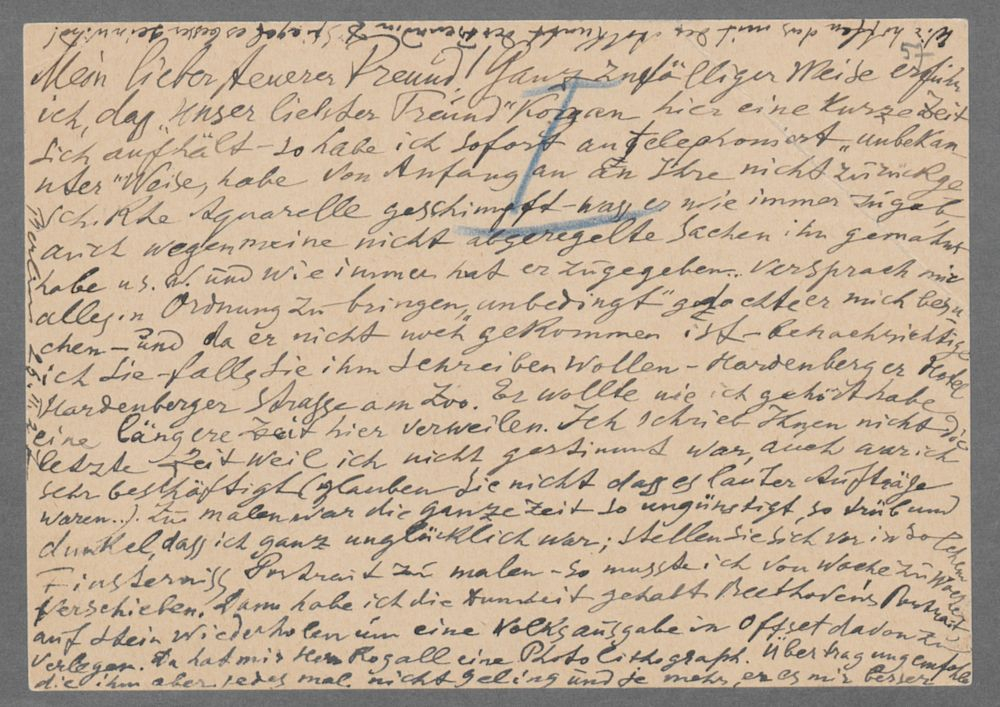 Wir hoffen dass mit der
Mein lieber teuerer Freund! Ganz zufälliger Weise erfuhr
ich, dass unser liebster Freund "Kogan hier eine Kurze Zeit
sich aufhält - so habe ich sofort antelephoniert "unbekan-
nter" Weise, habe von Anfang an an Ihre nicht zurückge
schikte Aquarelle geschimpft - was er wie immer zugab
auch wegen meine nicht abgeregelte Sachen ihn gemahnt
habe u.s.w. und wie immer hat er zugegeben.. versprach mir
alles in Ordnung zu bringen, "unbedingt" gedachte er mich besu
chen - und da er nicht noch gekommen ist - benachrichtige
ich Sie - falls Sie ihm schreiben wollen - Hardenberger Hotel
Hardenberger Strasse am Zoo. Er wollte wie ich gehört habe
eine längere Zeit hier verweilen. Ich schrieb Ihnen nicht die
letzte Zeit weil ich nicht gestimmt war, auch war ich
sehr beschäftigt (glauben Sie nicht dass es lauter Aufträge
waren..). Zu malen war die ganze Zeit so ungünstig, so trüb und
dunkel, dass ich ganz unglücklich war; stellen Sie sich vor in so
Finsterniss Portrait zu malen - so musste ich von Woche zu Woche
verschieben. Dann habe ich die Dumheit gehabt Beethoven's Portrait
auf Stein wiederholen um eine Volksausgabe in Offset davon zu
verlegen. Da hat mir Herr Rogall eine Photolithograph. Übertragung empfohle
die ihm aber jedes mal nicht geling und je mehr er es mir besser